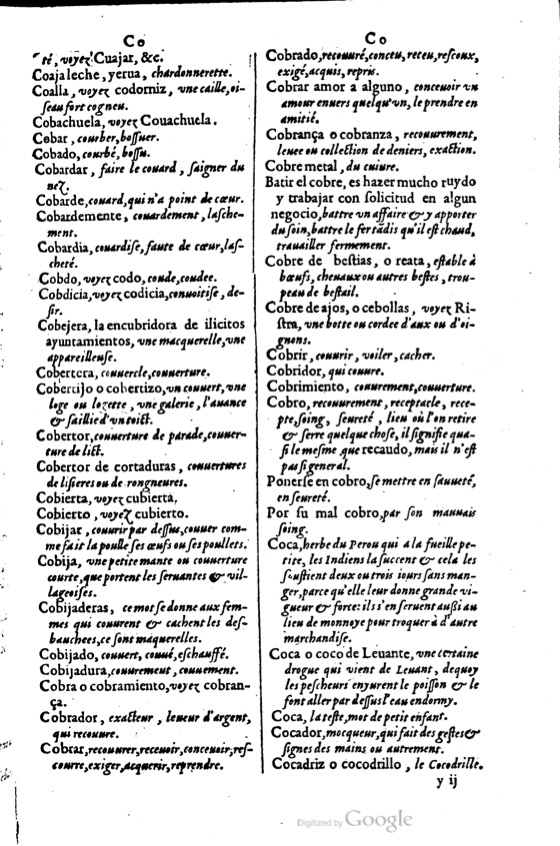 Co
té, voyez Cuajar, &c.
Coajaleche, yerua, chardonnerette.
Coalla, voyez codorniz, vne caille, oi-
seau fort cogneu.
Cobachuela, voyez Couachuela.
Cobar, courber, bossuer.
Cobado, courbé, bossu.
Cobardar, faire le couard, saigner du
nez.
Cobarde, couard, qui n'a point de cœur.
Cobardemente, couardement, lasche-
ment.
Cobardia, couardise, faute de cœur, las-
cheté.
Cobdo, voyez codo, coude, coudee.
Cobdicia, voyez codicia, conuoitise, de-
sir.
Cobejera, la encubridora de ilicitos
ayuntamientos, vne macquerelle, vne
appareilleuse.
Cobertera, couuercle, couuerture.
Cobertijo o cobertizo, vn couuert, vne
loge ou logette, vne galerie, l'auance
& saillie d'vn toict.
Cobertor, couuerture de parade, couuer-
ture de lict.
Cobertor de cortaduras, couuertures
de lisieres ou de rongneures.
Cobierta, voyez cubierta,
Cobierto, voyez cubierto.
Cobijar, couurir par dessus, couuer com-
me fait la poulle ses œufs ou ses poullets.
Cobija, vne petite mante ou couuerture
courte, que portent les seruantes & vil-
lageoises.
Cobijaderas, ce mot se donne aux fem-
mes qui couurent & cachent les des-
bauchees, ce sont maquerelles.
Cobijado, couuert, couué, eschauffé.
Cobijadura, couurement, couuement.
Cobra o cobramiento, voyez cobran-
ça.
Cobrador, exacteur, leueur d'argent,
qui recouure.
Cobrar, recouurer, receuoir, conceuoir, res-
courre, exiger, acquerir, reprendre.
Co
Cobrado, recouuré, conceu, receu, rescoux,
exigé, acquis, repris.
Cobrar amor a alguno, conceuoir vn
amour enuers quelqu'vn, le prendre en
amitié.
Cobrança o cobranza, recouurement,
leuee ou collection de deniers, exaction.
Cobre metal, du cuiure.
Batir el cobre, es hazer mucho ruydo
y trabajar con solicitud en algun
negocio, battre vn affaire & y apporter
du soin, battre le fer tādis qu'il est chaud,
trauailler fermement.
Cobre de bestias, o reata, estable à
bœufs, cheuaux ou autres bestes, trou-
peau de bestail.
Cobre de ajos, o cebollas, voyez Ri-
stra, vne botte ou cordee d'aux ou d'oi-
gnons.
Cobrir, couurir, voiler, cacher.
Cobridor, qui couure.
Cobrimiento, couurement, couuerture.
Cobro, recouurement, receptacle, rece-
pte, soing, seureté, lieu où l'on retire
& serre quelque chose, il signifie qua-
si le mesme que recaudo, mais il n'est
pas si general.
Ponerse en cobro, se mettre en sauueté,
en seureté.
Por su mal cobro, par son mauuais
soing.
Coca, herbe du Perou qui a la fueille pe-
tite, les Indiens la succent & cela les
soustient deux ou trois iours sans man-
ger, parce qu'elle leur donne grande vi-
gueur & force: ils s'en seruent aussi au
lieu de monnoye pour troquer à d'autre
marchandise.
Coca o coco de Leuante, vne certaine
drogue qui vient de Leuant, dequoy
les pescheurs enyurent le poisson & le
font aller par dessus l'eau endormy.
Coca, la teste, mot de petit enfant.
Cocador, mocqueur, qui fait des gestes &
signes des mains ou autrement.
Cocadriz o cocodrillo, le Cocodrille.
y ij
Digitized by Google